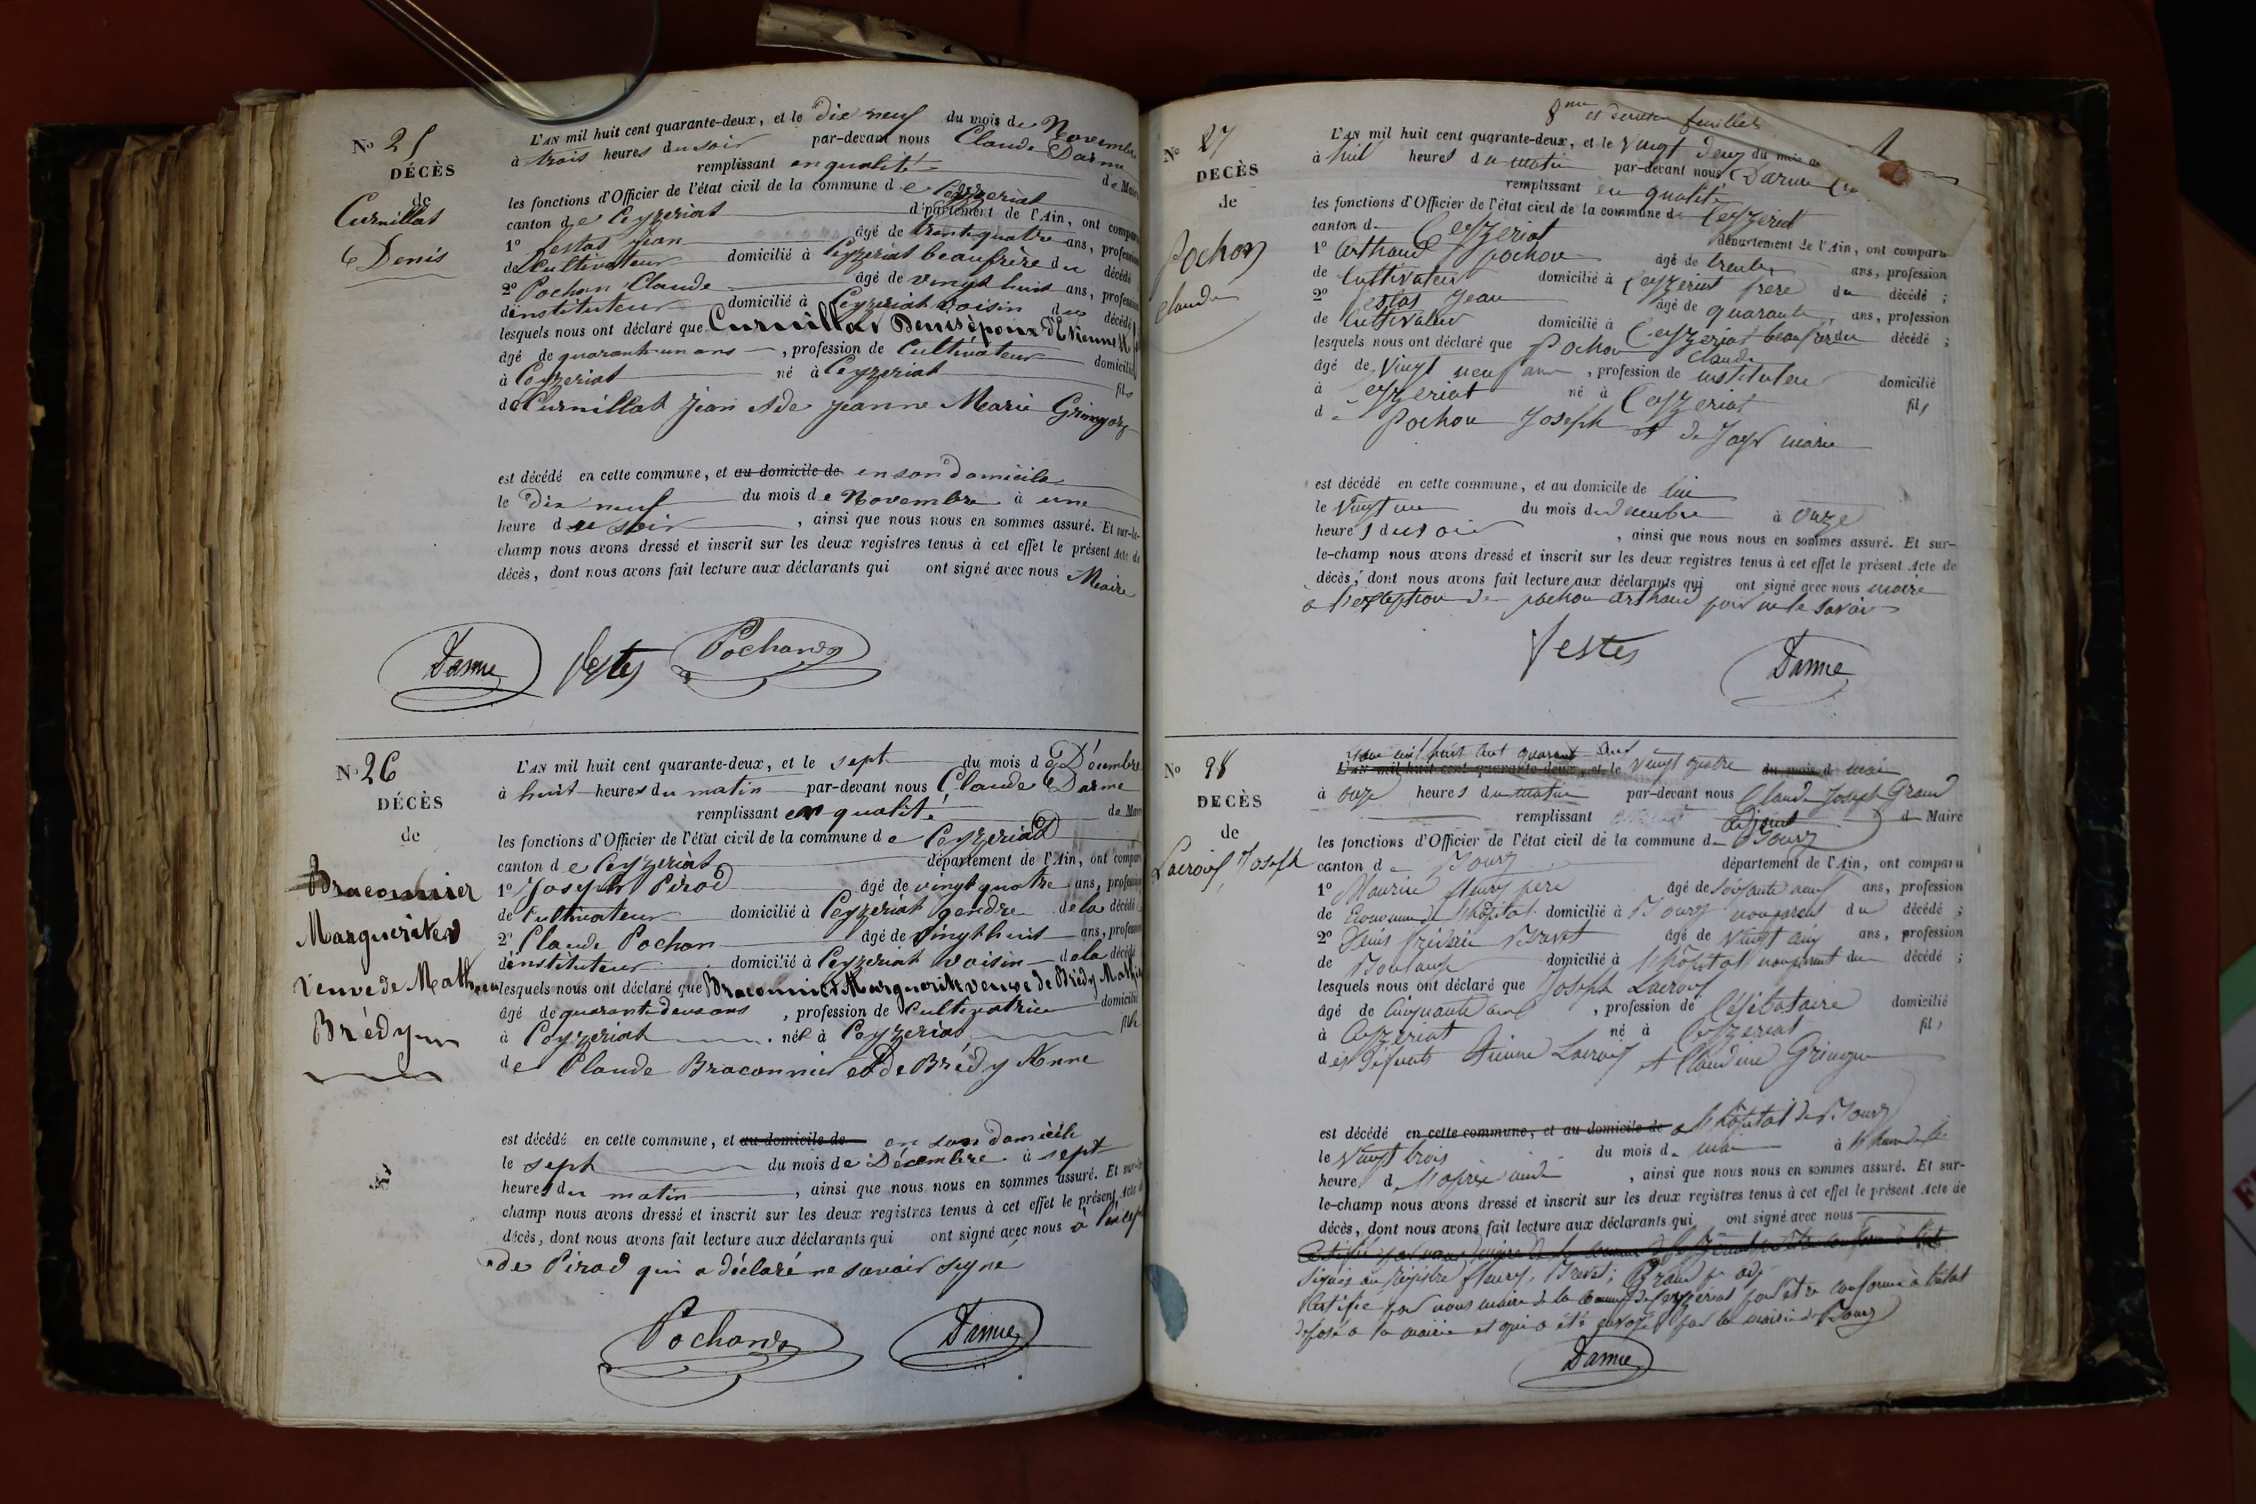 No 25
DÉCÈS
de
Curnillat
Denis
L'AN mil huit cent quarante-deux, et le dix neuf du mois de Novembre
à trois heures du soir par-devant nous Claude Darme
remplissant en qualité de Maire
les fonctions d'Officier de l'état civil de la commune de Ceyzeriat
canton de Ceyzeriat département de l'Ain, ont comparu
1° Festas Jean âgé de trente quatre ans, profession
de Cultivateur domicilié à Ceyzeriat beaufrere du décédé
2° Pochon Claude âgé de vingt huit ans, profession
d'instituteur domicilié à Ceyzeriat voisin du décédé
lesquels nous ont déclaré que Curnillat Denis époux d'Etiennette
âgé de quarante un ans, profession de Cultivateur domicilié
à Ceyzeriat né à Ceyzeriat fils
de Curnillat Jean et de Jeanne Marie
est décédé en cette commune, et au domicile de en son domicile
le dix neuf du mois de Novembre à une
heure du soir, ainsi que nous nous en sommes assuré. Et sur-le-
champ nous avons dressé et inscrit sur les deux registres tenus à cet effet le présent Acte de
décès, dont nous avons fait lecture aux déclarants qui ont signé avec nous Maire
Darme Festas Pochon
No 26
DÉCÈS
de
Braconnier
Marguerite
veuve de Mathieu
Brédy
L'AN mil huit cent quarante-deux, et le sept du mois de Décembre
à huit heures du matin par-devant nous Claude Darme
remplissant en qualité de Maire
les fonctions d'Officier de l'état civil de la commune de Ceyzeriat
canton de Ceyzeriat département de l'Ain, ont comparu
1° Joseph Pirod âgé de vingt quatre ans, profession
de Cultivateur domicilié à Ceyzeriat gendre de la décédé
2° Claude Pochon âgé de vingt huit ans, profession
d'instituteur domicilié à Ceyzeriat voisin de la décédé
lesquels nous ont déclaré que Braconnier Marguerite veuve de Brédy Mathieu
âgé de quarante deux ans, profession de Cultivatrice domicilié
à Ceyzeriat née à Ceyzeriat fille
de Claude Braconnier et de Brédy Anne
est décédé en cette commune, et au domicile de en son domicile
le sept du mois de Décembre à sept
heures du matin, ainsi que nous nous en sommes assuré. Et sur-le
champ nous avons dressé et inscrit sur les deux registres tenus à cet effet le présent Acte de
décès, dont nous avons fait lecture aux déclarants qui ont signé avec nous à l'excep
de Pirod qui a déclaré ne savoir signé
Pochon Darme
8me et dernier feuillet
No 27
DECÈS
de
Pochon
Claude
L'AN mil huit cent quarante-deux, et le vingt deux du mois
à huit heures du matin par-devant nous Darme
remplissant en qualité
les fonctions d'Officier de l'état civil de la commune de Ceyzeriat
canton de Ceyzeriat département de l'Ain, ont comparu
1° Arthaud Pochon âgé de trente ans, profession
de Cultivateur domicilié à Ceyzeriat frere du décédé ;
2° Festas Jean âgé de quarante ans, profession
de Cultivateur domicilié à Ceyzeriat beaufrère du décédé ;
lesquels nous ont déclaré que Pochon Claude
âgé de vingt neuf ans, profession de instituteur domicilié
à Ceyzeriat né à Ceyzeriat fils
de Pochon Joseph et de Marie
est décédé en cette commune, et au domicile de lui
le vingt un du mois de decembre à onze
heures du soir, ainsi que nous nous en sommes assuré. Et sur-
le-champ nous avons dressé et inscrit sur les deux registres tenus à cet effet le présent Acte de
décès, dont nous avons fait lecture aux déclarants qui ont signé avec nous maire
à l'exception de pochon arthaud pour ne le savoir
Festas Darme
No 28
DECÈS
de
Lacroix Joseph
L'an mil huit cent quarante deux
L'AN mil huit cent quarante-deux, et le vingt quatre du mois d mai
à onze heures du matin par-devant nous Claude Joseph Grand
remplissant adjoint d Maire
les fonctions d'Officier de l'état civil de la commune de Bourg
canton de Bourg département de l'Ain, ont comparu
1° Maurice fleury pere âgé de soixante neuf ans, profession
de Econome de l'hôpital domicilié à Bourg non parent du décédé ;
2° Denis frédéric Brevet âgé de vingt cinq ans, profession
de Boulanger domicilié à l'hôpital non parent du décédé ;
lesquels nous ont déclaré que Joseph Lacroix
âgé de cinquante ans, profession de Célibataire domicilié
à Ceyzeriat né à Ceyzeriat fils
des défunts Lacroix et Claudine
est décédé en cette commune, et au domicile de à l'hôpital de Bourg
le vingt trois du mois de mai à
heure d, ainsi que nous nous en sommes assuré. Et sur-
le-champ nous avons dressé et inscrit sur les deux registres tenus à cet effet le présent Acte de
décès, dont nous avons fait lecture aux déclarants qui ont signé avec nous
Signés au registre fleury, Brevet, Grand
Certifié par nous maire de la commune de Ceyzeriat pour être conforme à l'état
déposé à la mairie et qui a été envoyé par la mairie de Bourg
Darme